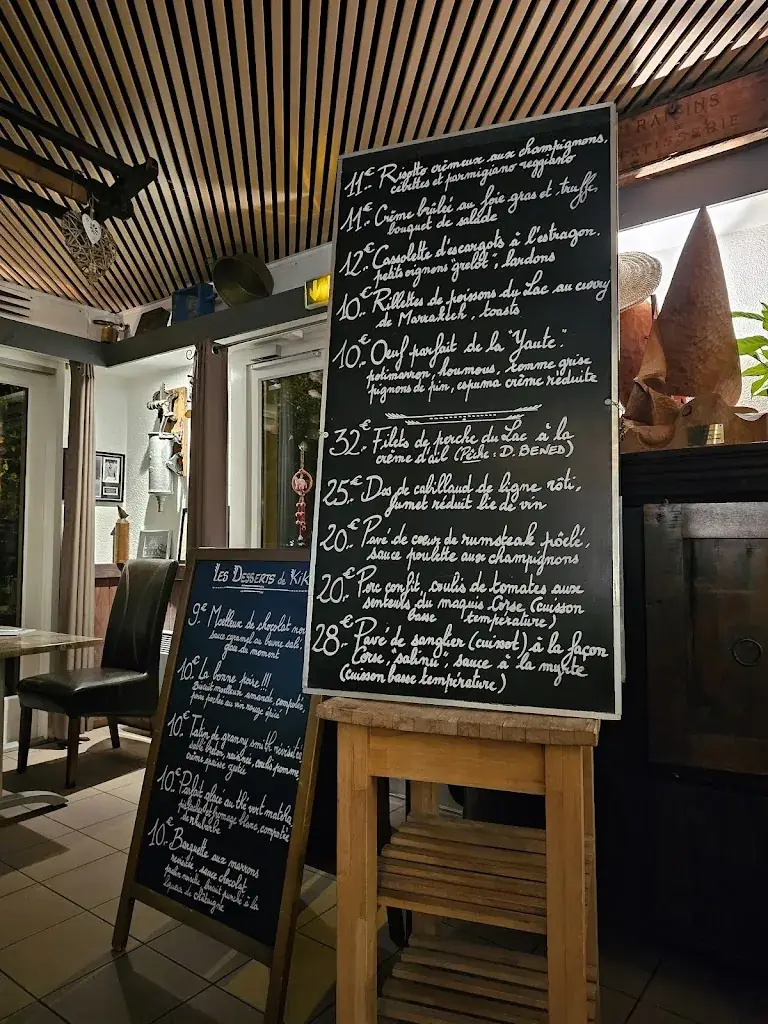 RAISINS
PATISSERIE
11€.. Risotto crémeux aux champignons,
cébettes et parmigiano reggiano
11€.. Crème brûlée au foie gras et truffe,
bouquet de salade
12€.. Cassolette d'escargots à l'estragon,
petits oignons "grelot", lardons
10€.. Rillettes de poissons du Lac au curry
de Marrakech, toasts
10€.. Oeuf parfait de la "Yaute":
potimarron, houmous, tomme grise
pignons de pin, espuma crème réduite
32€.. Filets de perche du Lac à la
crème d'ail (Pêche: D. BENED)
25€.. Dos de cabillaud de ligne rôti,
fumet réduit lie de vin
20€.. Pavé de coeur de rumsteak poêlé,
sauce poulette aux champignons
20€.. Porc confit, coulis de tomates aux
senteurs du maquis Corse (cuisson
basse température)
28€.. Pavé de sanglier (cuissot) à la façon
Corse, "salinu", sauce à la myrte
(cuisson basse température)
LES DESSERTS de Kik
9€.. Moelleux de chocolat noir
sauce caramel au beurre salé,
glace du moment
10€.. La bonne poire!!!
Biscuit moelleux amande, compotée,
poire pochée au vin rouge épicé
10€.. Tatin de granny smith revisitée
sablé breton, coulis pomme,
crème épaisse
10€.. Parfait glacé au thé vert matcha
fromage blanc, compotée
de rhubarbe
10€.. Barquette aux marrons
revisitée, sauce chocolat
biscuit punché à la
liqueur de châtaigne